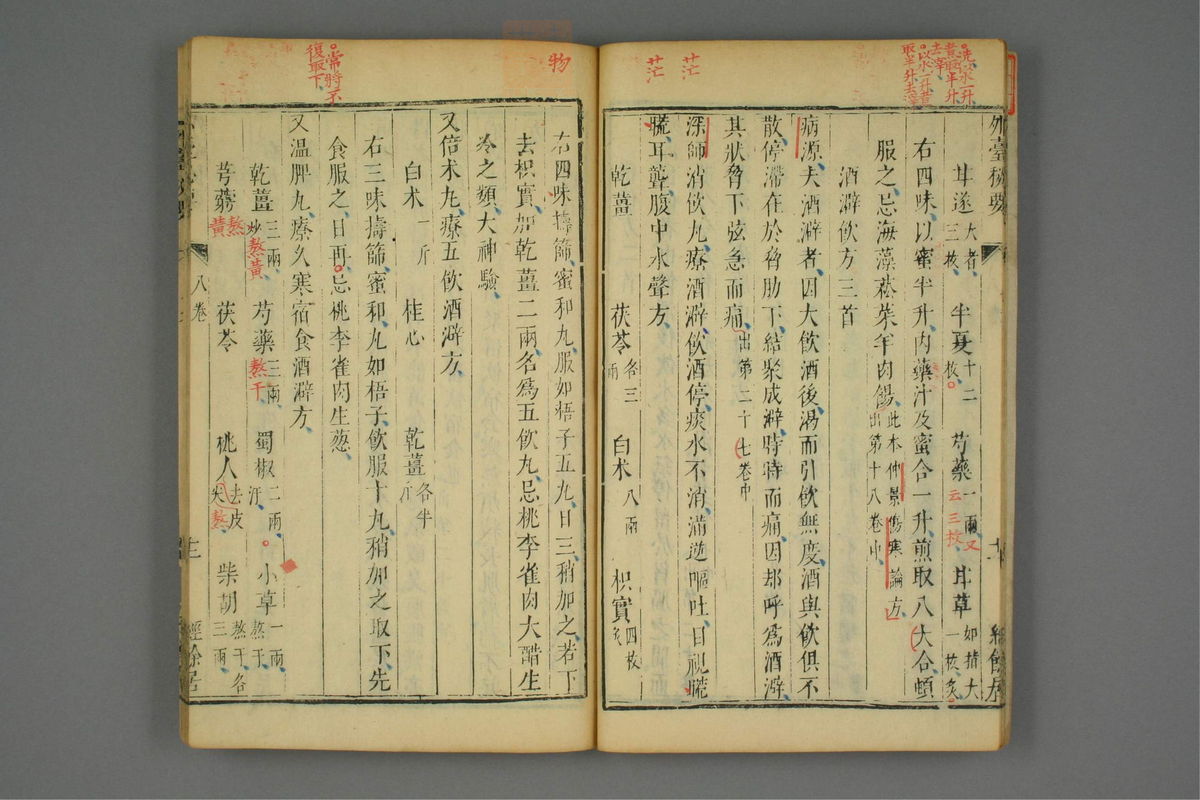 洗以水一升
煮取半升
去滓
以水一升煮
取半升去滓
茫
茫
外臺秘要
甘遂大者三枚 半夏十二枚 芍藥一兩又云三枚 甘草如指大一枚炙
右四味以蜜半升內藥汁及蜜合一升煎取八大合頓
服之忌海藻菘菜羊肉餳此本仲景傷寒論方出第十八卷中
酒澼飲方三首
病源夫酒澼者因大飲酒後渴而引飲無度酒與飲俱不
散停滯在於脅肋下結聚成澼時時而痛因即呼為酒澼
其狀脅下弦急而痛出第二十七卷中
深師消飲丸療酒澼飲酒停痰水不消滿逆嘔吐目視䀮
䀮耳聾腹中水聲方
乾薑 茯苓各三兩 白朮八兩 枳實四枚炙
物
常時不
復取下
右四味擣篩蜜和丸服如梧子五丸日三稍加之若下
去枳實加乾薑二兩名為五飲丸忌桃李雀肉大醋生
冷之類大神驗
又倍朮丸療五飲酒澼方
白朮一斤 桂心 乾薑各半斤
右三味擣篩蜜和丸如梧子飲服十丸稍加之取下先
食服之日再忌桃李雀肉生葱
又溫脾丸療久寒宿食酒澼方
乾薑三兩炒熬黃 芍藥三兩熬干 蜀椒二兩汗 小草一兩熬干
芎藭熬黃 茯苓 桃人去皮尖熬 柴胡三兩熬干各
八卷
經餘居